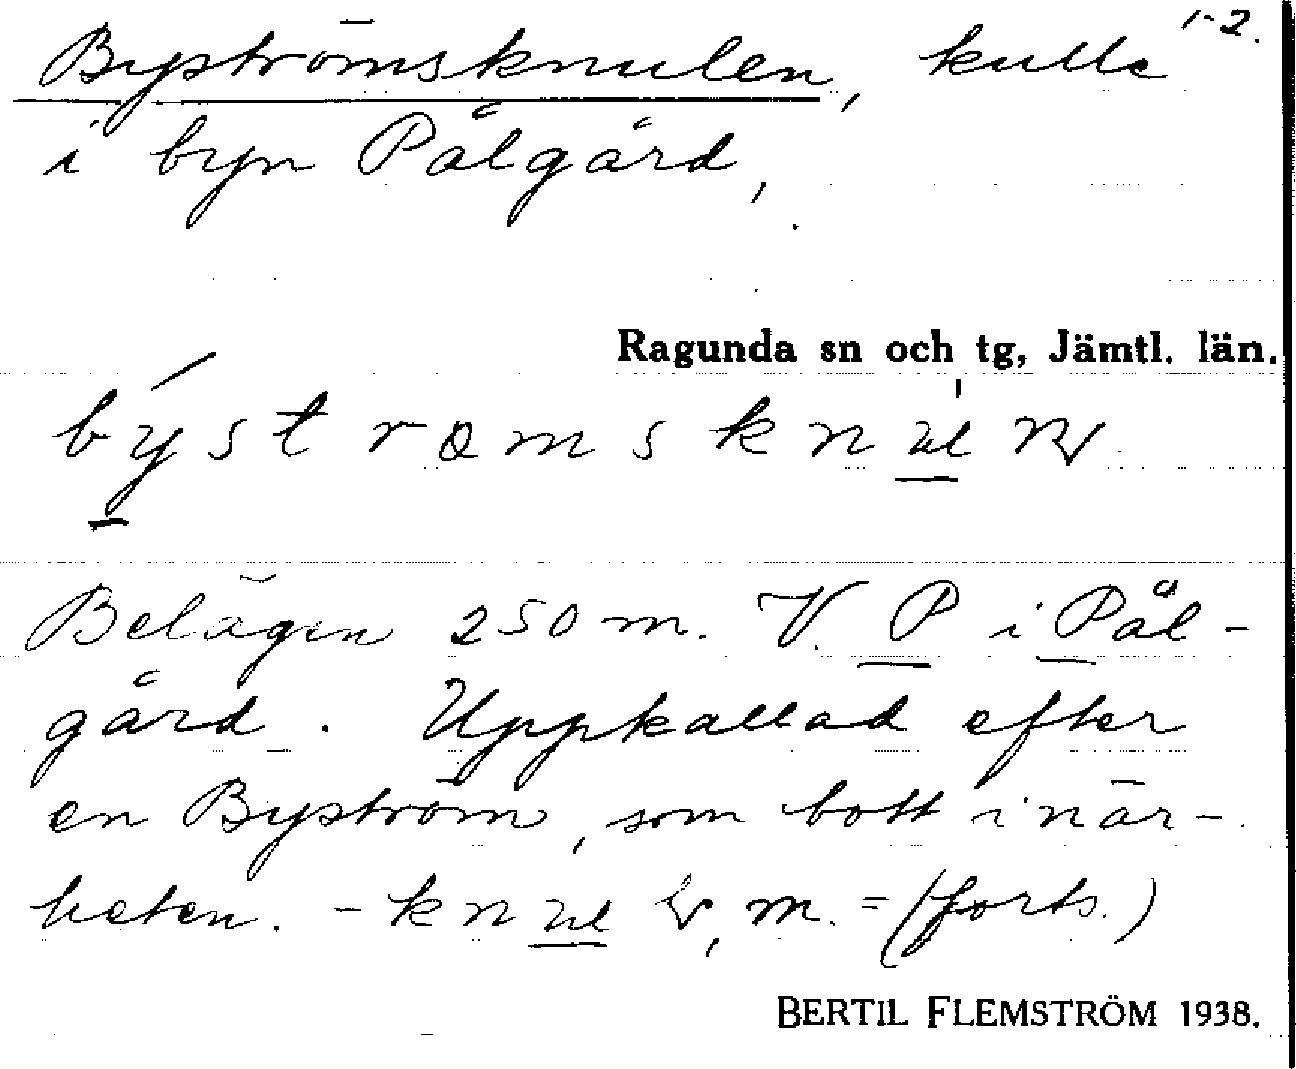 1-2.
Byströmsknulen, kulle
i byn Pålgård,
Ragunda sn och tg, Jämtl. län.
Belägen 250 m. V. P i Pål-
gård. Uppkallad efter
en Byström, som bott i när-
heten. - , m. = (forts.)
BERTIL FLEMSTRÖM 1938.